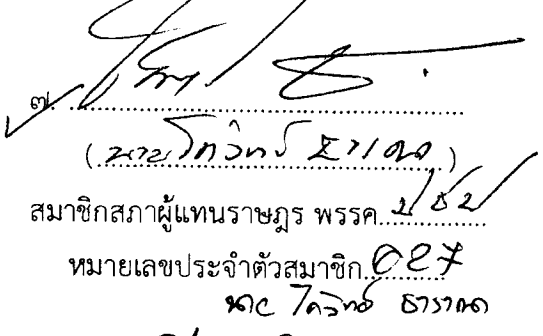 ๗. ........................................
( นายโกวิทย์ ธารณา )
สมาชิกสภาผู้แทนราษฎร พรรค ปชป
หมายเลขประจำตัวสมาชิก 027
นาย โกวิทย์ ธารณา